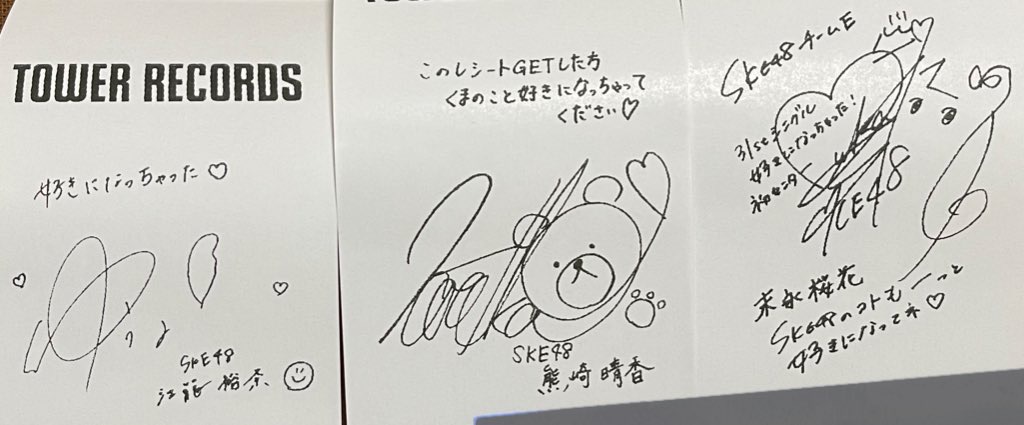 TOWER RECORDS
好きになっちゃった♡
SKE48
江籠裕奈
このレシートGETした方
くまのこと好きになっちゃって
ください♡
SKE48
熊崎晴香
SKE48 チームE
31stシングル
好きになっちゃった!
初センター
SKE48
末永桜花
SKE48のコトも
もーっと
好きになってネ♡